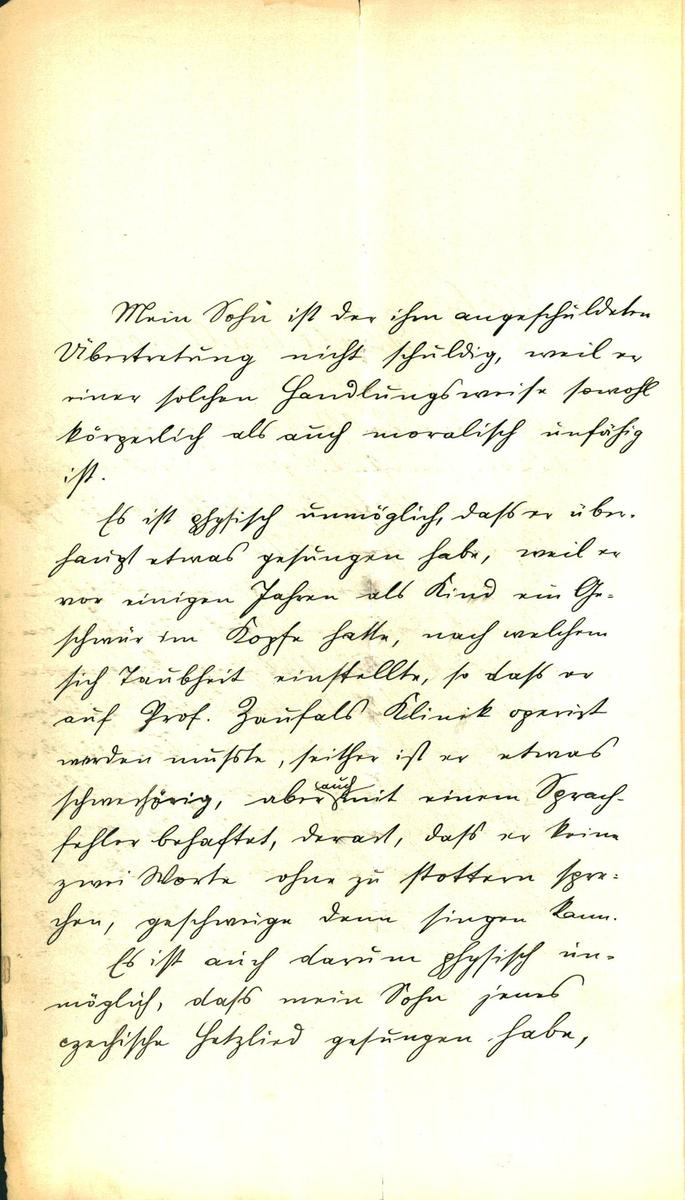 Mein Sohn ist der ihm angeschuldeten
Übertretung nicht schuldig, weil er
einer solchen Handlungsweise sowohl
körperlich als auch moralisch unfähig
ist.
Es ist physisch unmöglich, dass er über-
haupt etwas gesungen habe, weil er
vor einigen Jahren als Kind ein Ge-
schwür im Kopfe hatte, nach welchem
sich Taubheit einstellte, so dass er
auf Prof. Zaufals Klinik operirt
werden musste, seither ist er etwas
schwerhörig, aber auch mit einem Sprach-
fehler behaftet, derart, dass er keine
zwei Worte ohne zu stottern spre-
chen, geschweige denn singen kann.
Es ist auch darum physisch un-
möglich, dass mein Sohn jenes
czechische Hetzlied gesungen habe,